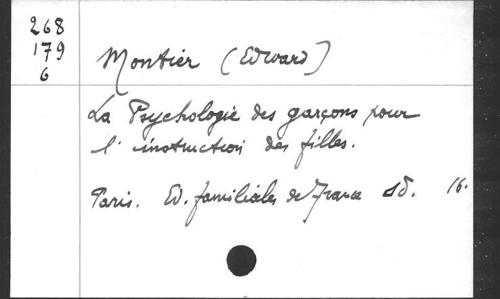 268
179
6
Montier (Edward)
La Psychologie des garçons pour
l'instruction des filles.
Paris. Ed. familiales de France sd. 16.